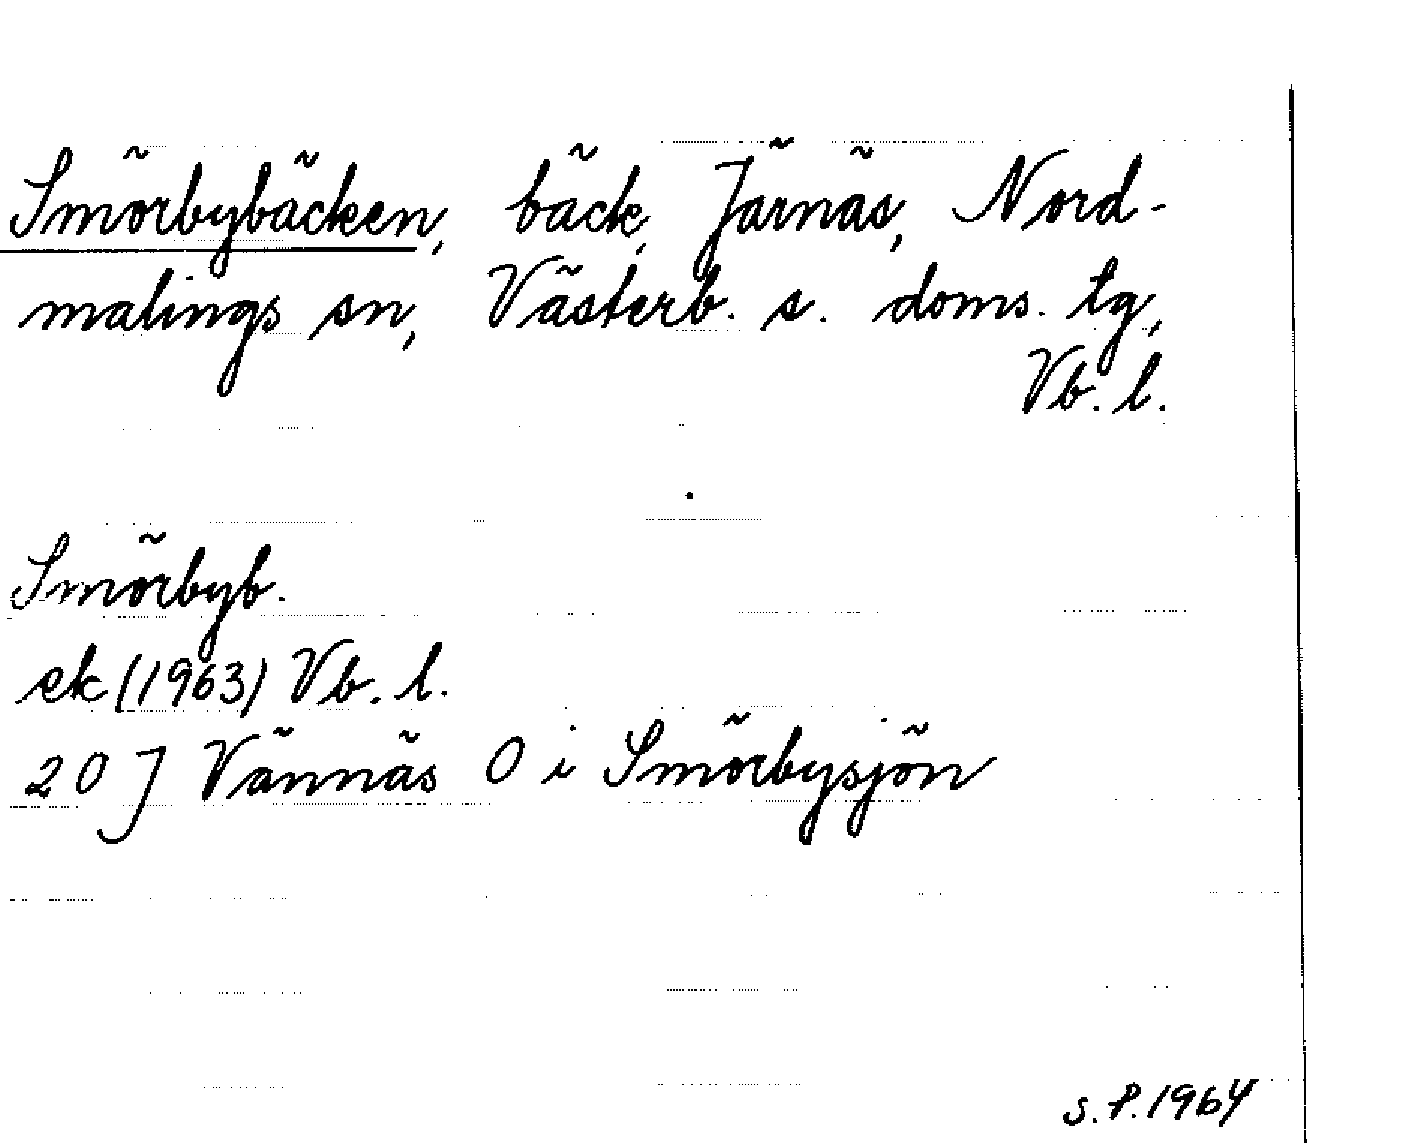 Smörbybäcken, bäck, Järnäs, Nord-
malings sn, Västerb. s. doms. tg,
Vb. l.
Smörbyb.
ek (1963) Vb. l.
20 J Vännäs O i Smörbysjön
S.P. 1964